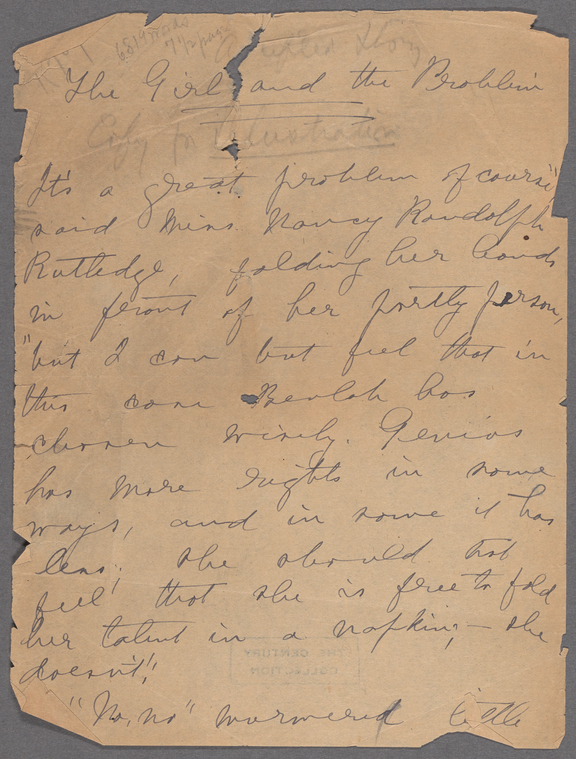 6819 words
7 1/2 pages
The Girl and the Problem
Copy for Illustration
It's a great problem of course
said Miss Nancy Randolph
Rutledge, folding her hands
in front of her portly person,
"but I can but feel that in
this case Beulah has
chosen wisely. Genius
has more rights in some
ways, and in some it has
less; she should not
feel that she is free to fold
her talent in a napkin; — she
doesn't!"
THE CENTURY
COLLECTION
"No, no" murmured little